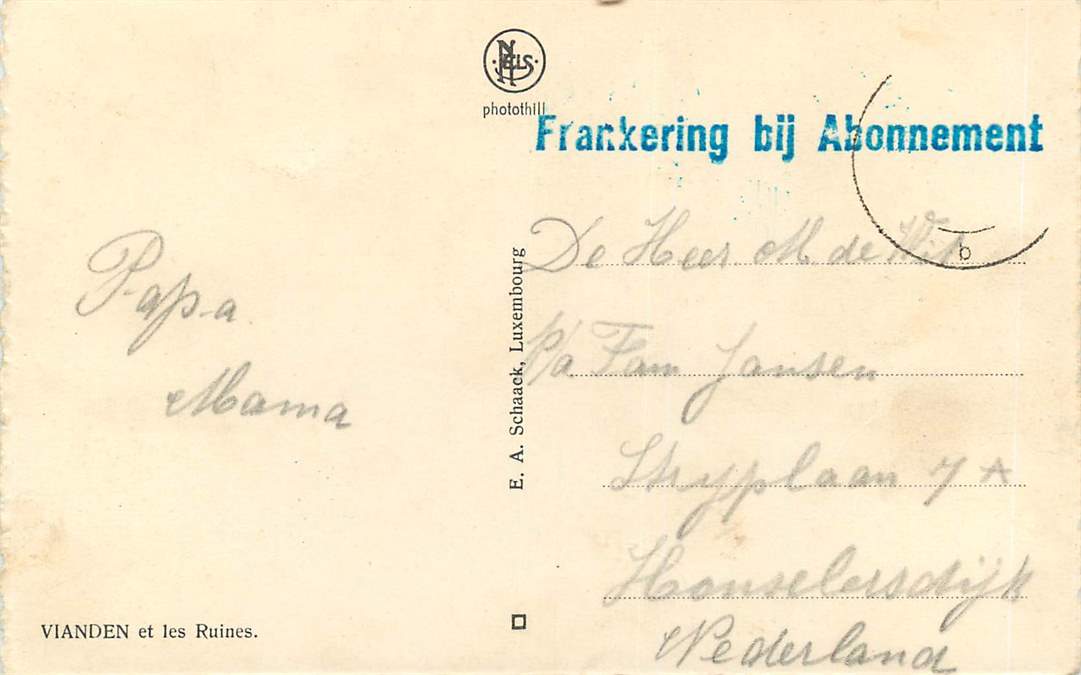 NELS
photothill
Frankering bij Abonnement
b
Papa
Mama
E. A. Schaack, Luxembourg
De Heer M. de Wit
p/a Fam Jansen
Stryplaan 7 A
Honselersdijk
Nederland
VIANDEN et les Ruines.